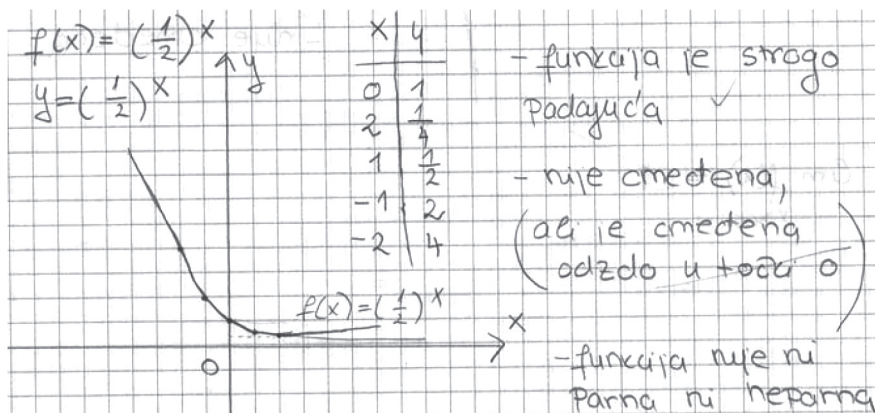 f(x) = (1/2)^x
y = (1/2)^x
y
x | y
0 | 1
2 | 1/4
1 | 1/2
-1 | 2
-2 | 4
f(x) = (1/2)^x
x
0
- funkcija je strogo
padajuća ✓
- nije omeđena,
(ali je omeđena
odzdo u točci 0)
- funkcija nije ni
parna ni neparna